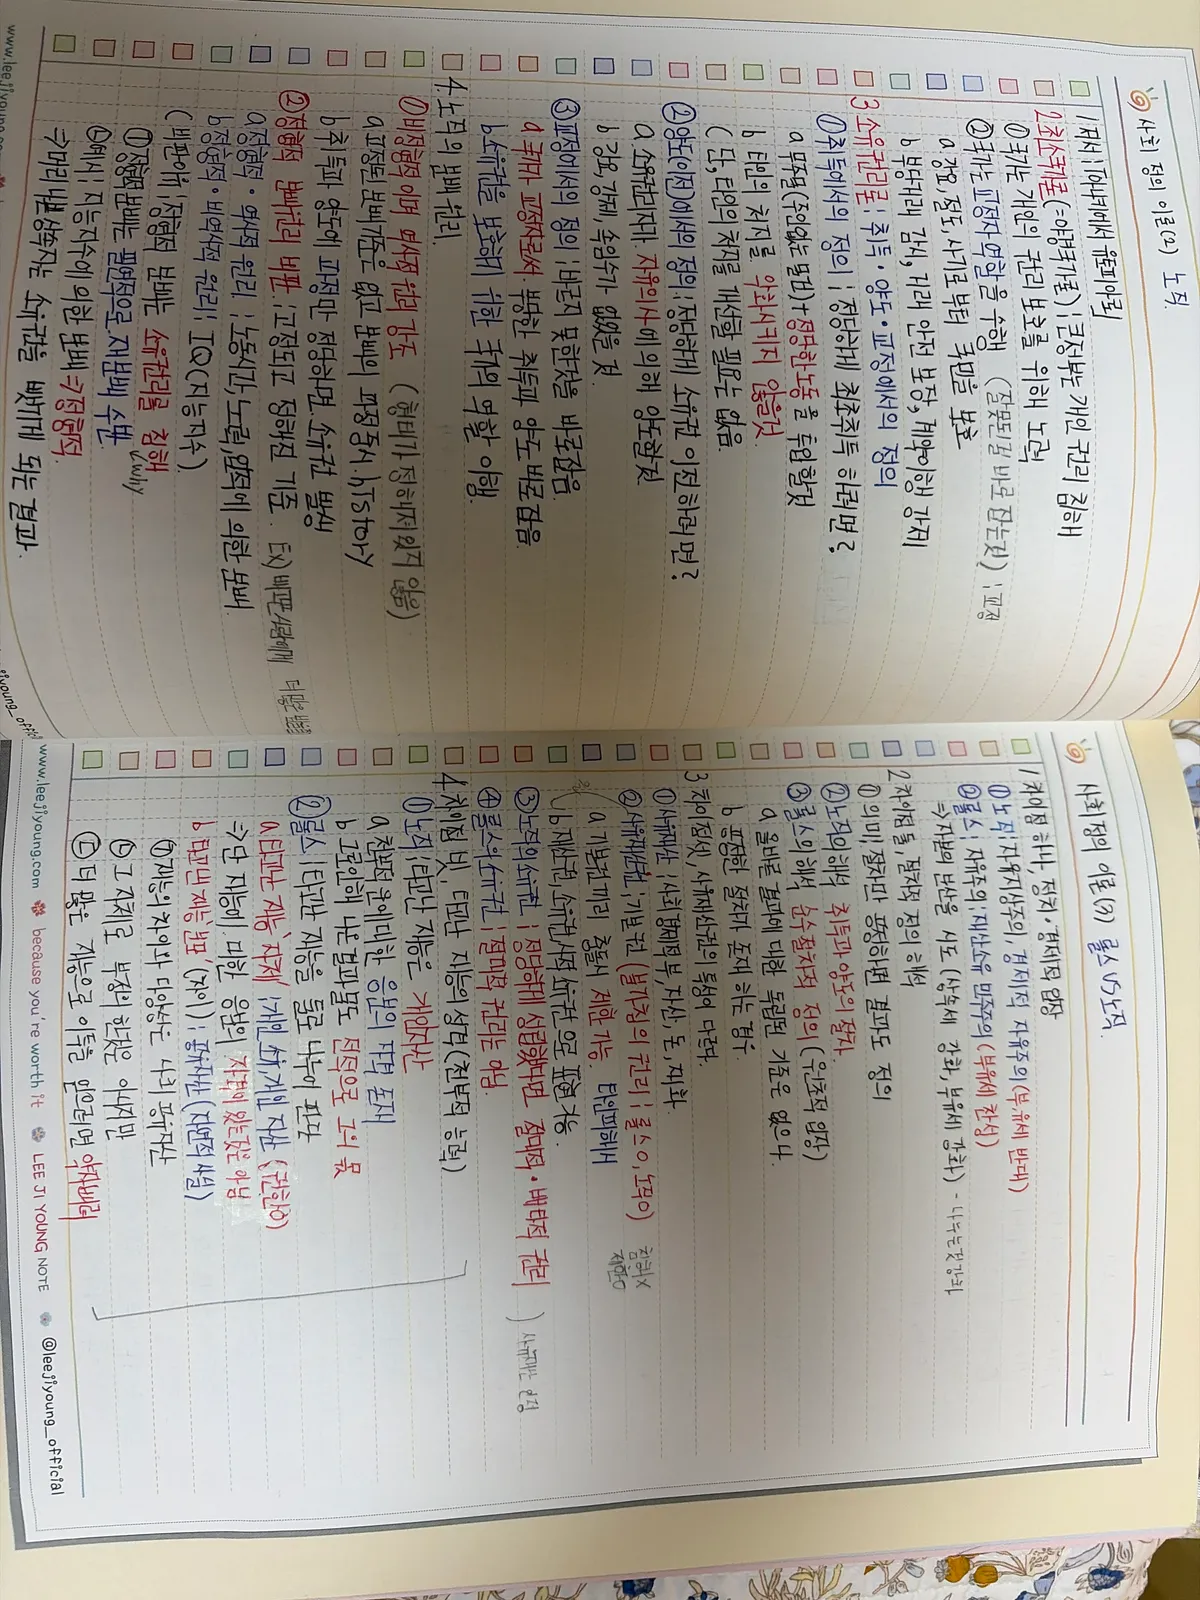 사회 정의 이론(2) 노직
1 저서 : 「아나키에서 유토피아로」
2 최소국가론(=야경국가론) : 큰정부는 개인 권리 침해
① 국가는 개인의 권리 보호를 위해 노력
② 국가는 교정자 역할을 수행 (잘못된걸 바로 잡는것) : 교정
a 강요, 절도, 사기로부터 국민을 보호
b 부당거래 감시, 거래 안전 보장, 계약이행 강제
3 소유권리론 : 취득·양도·교정에서의 정의
① 취득에서의 정의 : 정당하게 최초취득 하려면?
a 무주물(주인없는 물건)+정당한노동을 투입할것
b 타인의 처지를 악화시키지 않을것
(단, 타인의 처지를 개선할 필요는 없음
② 양도(이전)에서의 정의 : 정당하게 소유권 이전하려면?
a. 소유권리자가 자유의사에 의해 양도할것
b 강요, 강제, 속임수가 없을 것
③ 교정에서의 정의 : 바르지 못한것을 바로잡음
a 국가가 교정자로써 부당한 취득과 양도 바로잡음.
b 소유권을 보호하기 위한 국가의 역할 이행.
4. 노직의 분배 원리
① 비정형적이며 역사적 원리 강조 (형태가 정해져있지 않음)
a 고정된 분배기준은 없고 분배의 과정중시 history
b 취득과 양도에 과정만 정당하면 소유권 발생
② 정형적 분배원리 비판 : 고정되고 정해진 기준. Ex) 배고픈 사람에게 더많은 빵을
a 정형적·역사적 원리 : 노동시간, 노력, 업적에 의한 분배.
b 정형적·비역사적 원리 : IQ(지능지수)
(비판이유 : 정형적 분배는 소유권리를 침해
㉠ 정형적 분배는 필연적으로 재분배 수반
㉡ 예시 : 지능지수에 의한 분배 → 정형적
→ 머리 나쁜 상속자는 소유권을 뺏기게 되는 결과
www.leejiyoung
사회 정의 이론(3) 롤스 VS 노직
1 차이점 하나, 정치·경제적 입장
① 노직 : 자유지상주의, 경제적 자유주의 (부유세 반대)
② 롤스 : 자유주의, 재산소유 민주주의 (부유세 찬성)
→ 자본의 분산을 시도 (상속세 강화, 부유세 강화) - 나누는것강조
2 차이점 둘, 절차적 정의 해석
① 의미 : 절차만 공정하면 결과도 정의
② 노직의 해석 : 취득과 양도의 절차
③ 롤스의 해석 : 순수절차적 정의 (원초적 입장)
a 올바른 결과에 대한 독립된 기준은 없으나
b 공정한 절차가 존재 하는 경우
3 차이점 셋, 사유재산권의 특성이 다르다.
② 사유재산권 : 기본권 (불가침의 권리 : 롤스 O, 노직 O)
침해X
제한O
a 기본권끼리 충돌시 제한 가능.
b 재산권, 소유권, 사적 소유권으로 표현 가능.
③ 노직의 소유권 : 정당하게 성립했다면 절대적·배타적 권리
④ 롤스의 소유권 : 절대적 권리는 아님
4 차이점 넷, 타고난 재능의 성격 (천부적 능력)
① 노직 : 타고난 재능은 개인자산
a 천부적 운에 대한 응분의 자격 존재
b 그로인해 나온 결과물도 전적으로 그의 몫
② 롤스 : 타고난 재능을 둘로 나누어 판단
a 타고난 재능 '자체' : 개인 소유, 개인 자산 (권한O)
→ 단 재능이 마땅한 응분의 자격이 있는것은 아님
b 타고난 재능 분포 '(차이)' : 공유자산 (자연적 사실)
㉠ 재능의 차이와 다양성은 사회 공유자산
㉡ 그 자체로 부정의한것은 아니지만
㉢ 더 많은 재능으로 이득을 얻으려면 약자배려
www.leejiyoung.com because you're worth it LEE JI YOUNG NOTE @leejiyoung_official